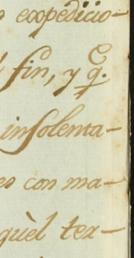 o expedicio-
fin, y q̃.
insolenta-
es con ma-
quèl ter-